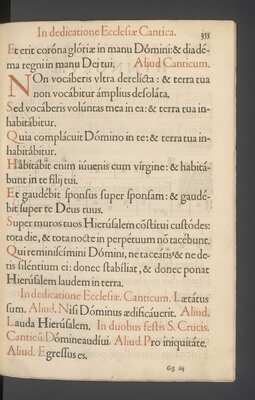 In dedicatione Ecclesiæ Cantica. 353
Et erit coróna glóriæ in manu Dómini: & diadé-
ma regni in manu Dei tui. Aliud Canticum.
NOn vocáberis vltra derelícta: & terra tua
non vocábitur ámplius desoláta.
Sed vocáberis volúntas mea in ea: & terra tua in-
habitábitur.
Quia complácuit Dómino in te: & terra tua in-
habitábitur.
Habitábit enim iúuenis cum vírgine: & habitá-
bunt in te fílij tui.
Et gaudébit sponsus super sponsam: & gaudé-
bit super te Deus tuus.
Super muros tuos Hierúsalem cõstítui custódes:
tota die, & tota nocte in perpétuum nõ tacébunt.
Qui reminiscímini Dómini, ne taceátis: & ne de-
tis siléntium ei: donec stabíliat, & donec ponat
Hierúsalem laudem in terra.
In dedicatione Ecclesiæ. Canticum. Lætatus
sum. Aliud. Nisi Dóminus ædificáuerit. Aliud.
Lauda Hierúsalem. In duobus festis S. Crucis.
Canticũ. Dómine audíui. Aliud. Pro iniquitáte.
Aliud. Egressus es.